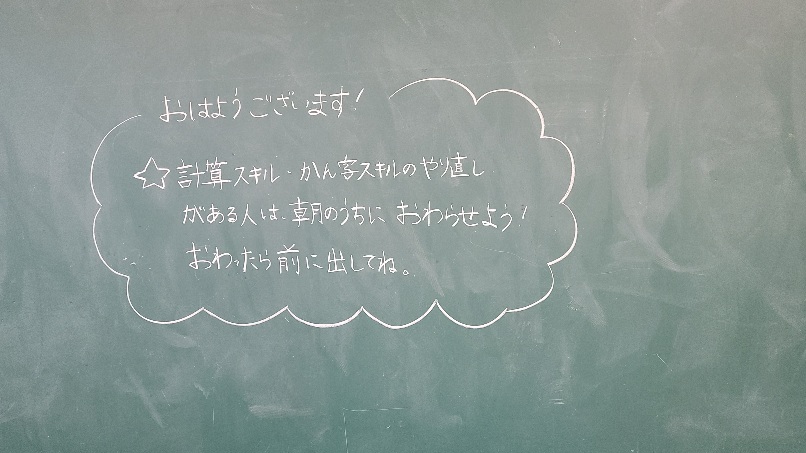 おはようございます!
☆計算スキル・かん字スキルのやり直し
がある人は、朝のうちに おわらせよう!
おわったら前に出してね。